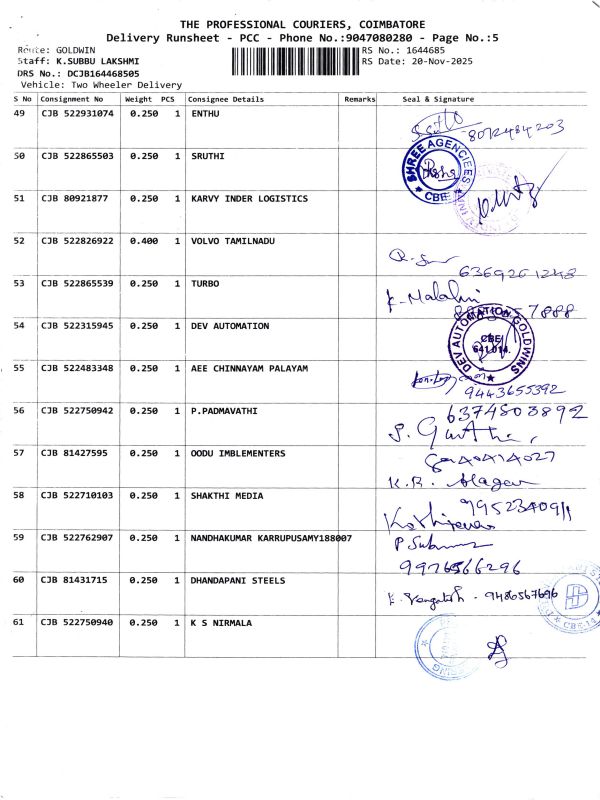 THE PROFESSIONAL COURIERS, COIMBATORE
Delivery Runsheet - PCC - Phone No.:9047080280 - Page No.:5
Route: GOLDWIN
Staff: K.SUBBU LAKSHMI
DRS No.: DCJB164468505
Vehicle: Two Wheeler Delivery
RS No.: 1644685
RS Date: 20-Nov-2025
S No Consignment No Weight PCS Consignee Details Remarks Seal & Signature
49 CJB 522931074 0.250 1 ENTHU
8012484203
50 CJB 522865503 0.250 1 SRUTHI
SHREE AGENCIEES
CBE
51 CJB 80921877 0.250 1 KARVY INDER LOGISTICS
52 CJB 522826922 0.400 1 VOLVO TAMILNADU
6369261248
53 CJB 522865539 1 0.250 TURBO
K. Malahni
7888
54 CJB 522315945 0.250 1 DEV AUTOMATION
DEV AUTOMATION GOLDWINS
CBE
641 014.
55 CJB 522483348 0.250 1 AEE CHINNAYAM PALAYAM
9443655392
56 CJB 522750942 0.250 1 P.PADMAVATHI
6374803892
57 CJB 81427595 0.250 1 OODU IMBLEMENTERS
K.B.
58 CJB 522710103 0.250 1 SHAKTHI MEDIA
9952340911
59 CJB 522762907 0.250 1 NANDHAKUMAR KARRUPUSAMY188007
9976566296
60 CJB 81431715 0.250 1 DHANDAPANI STEELS
K. Vengatesh - 9486567696
CBE-14
61 CJB 522750940 0.250 1 K S NIRMALA